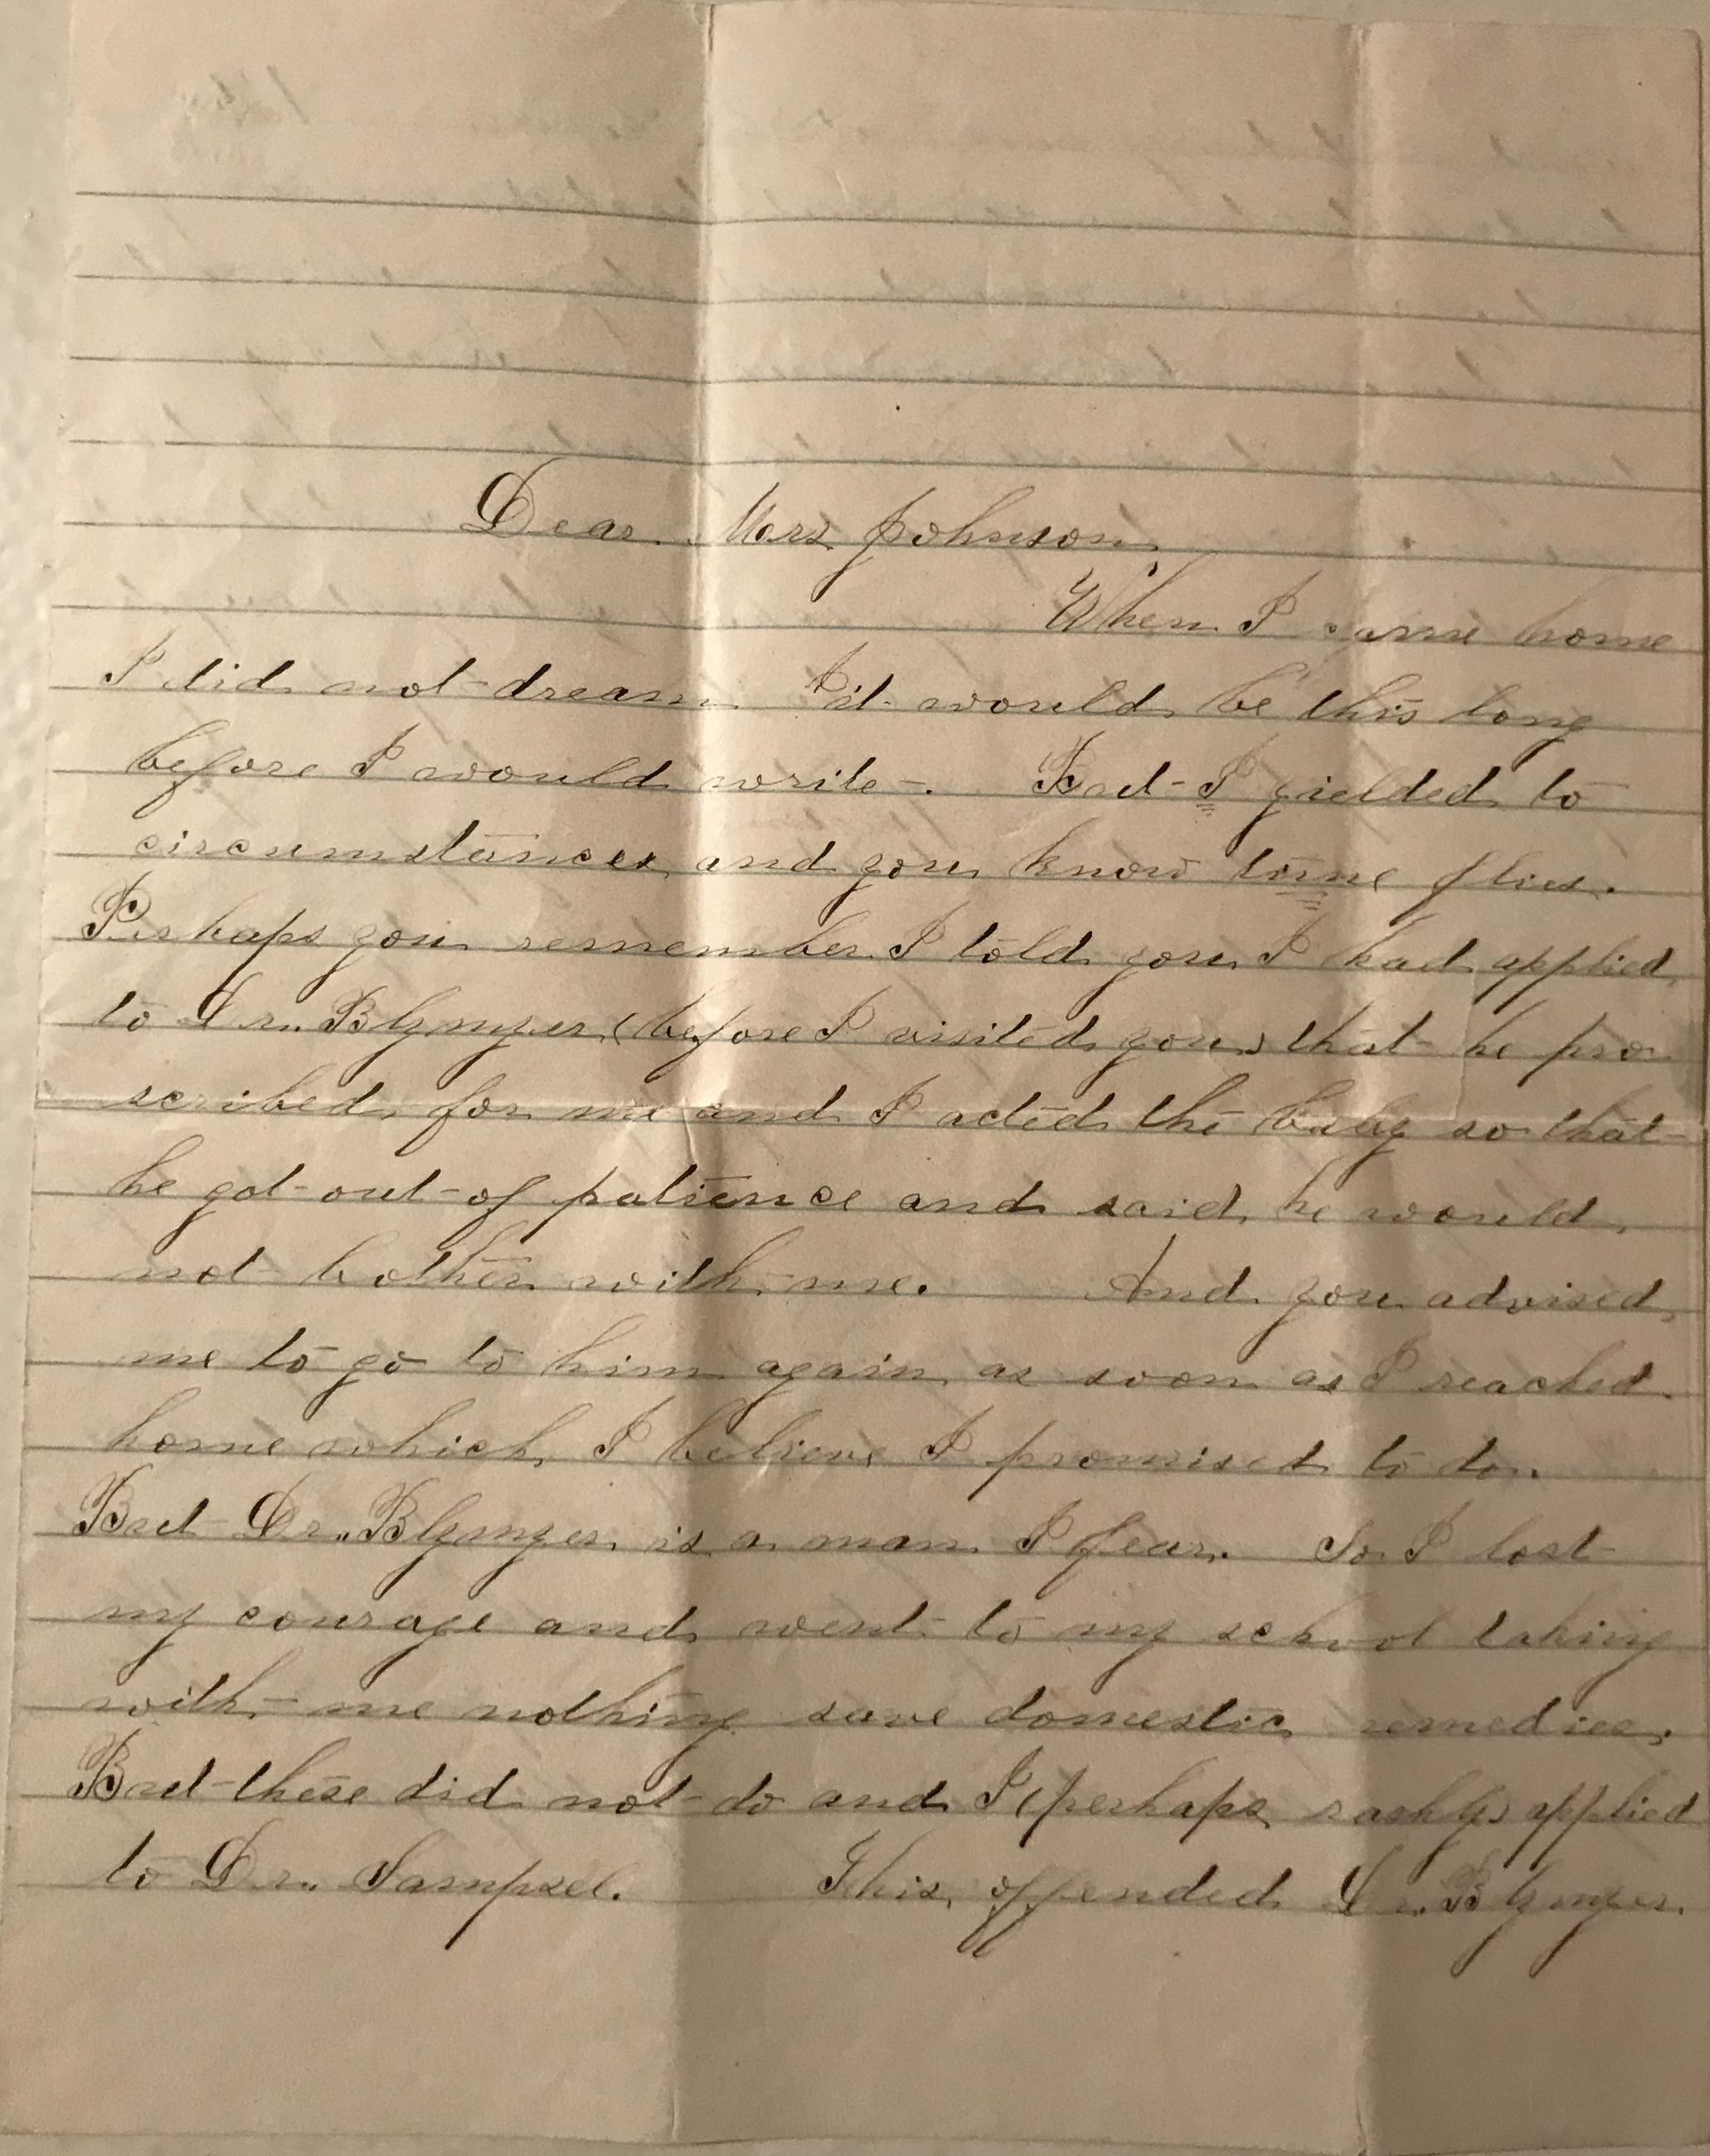 Dear Mrs Johnson
When I came home
I did not dream it would be this long
before I would write. But I yielded to
circumstances and you know time flies.
Perhaps you remember I told you I had applied
to Dr. Blymyer (before I visited you) that he pre
scribed for me and I acted the baby so that
he got out of patience and said he would
not bother with me. And you advised
me to go to him again as soon as I reached
home which I believe I promised to do.
But Dr. Blymyer is a man I fear. So I lost
my courage and went to my school taking
with me nothing save domestic remedies.
But these did not do and I (perhaps rashly) applied
to Dr. Sampsel. This offended Dr. Blymyer.